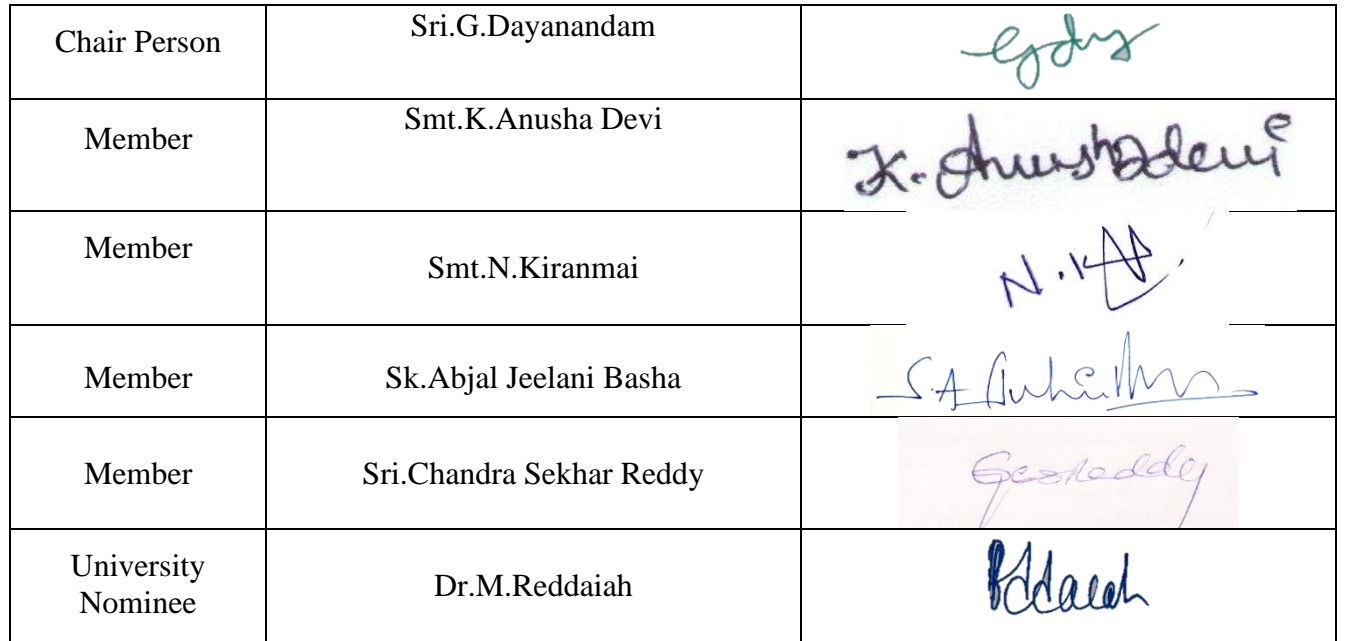 Chair Person
Sri.G.Dayanandam
Gdy
Member
Smt.K.Anusha Devi
K. Anusha Devi
Member
Smt.N.Kiranmai
Member
Sk.Abjal Jeelani Basha
Member
Sri.Chandra Sekhar Reddy
University
Nominee
Dr.M.Reddaiah